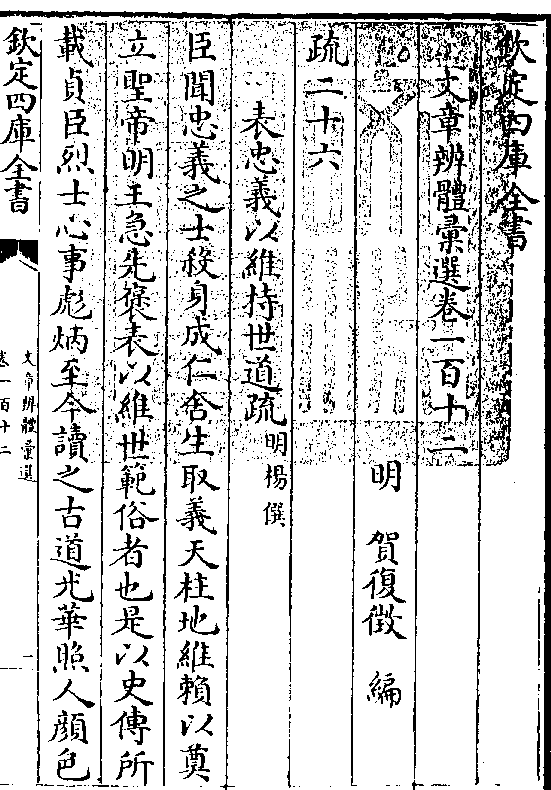 欽定四庫全書
文章辨體彙選卷一百十二
明 賀復徵 編
疏二十六
表忠義以維持世道疏明楊僎
臣聞忠義之士殺身成仁舍生取義天柱地維賴以奠
立聖帝明王急先褒表以維世範俗者也是以史傳所
載貞臣烈士心事彪炳至今讀之古道光華照人顏色
欽定四庫全書
文章辨體彙選
卷一百十二
一